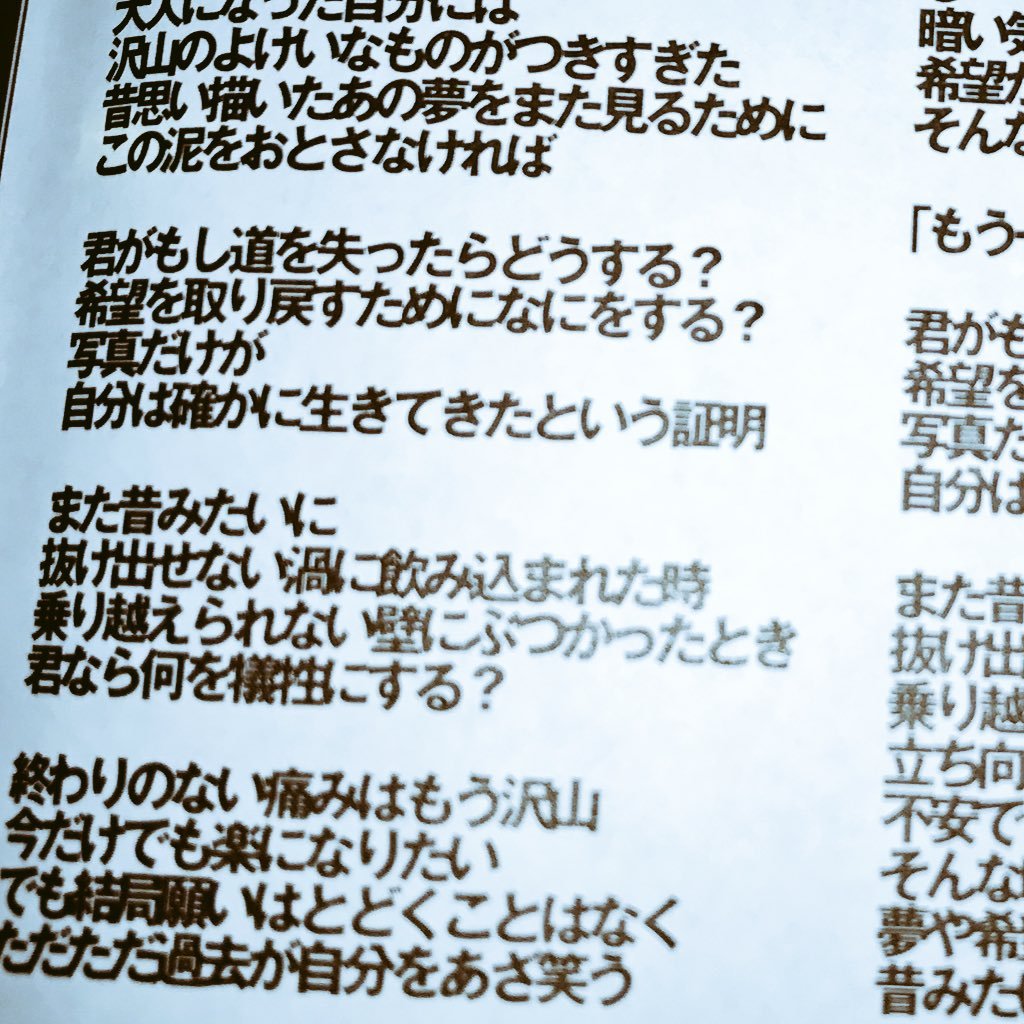 大人になった自分には
沢山のよけいなものがつきすぎた
昔思い描いたあの夢をまた見るために
この泥をおとさなければ
君がもし道を失ったらどうする？
希望を取り戻すためになにをする？
写真だけが
自分は確かに生きてきたという証明
また昔みたいに
抜け出せない渦に飲み込まれた時
乗り越えられない壁にぶつかったとき
君なら何を犠牲にする？
終わりのない痛みはもう沢山
今だけでも楽になりたい
でも結局願いはとどくことはなく
ただただ過去が自分をあざ笑う
暗い
希望
そんな
「もう
君がも
希望を
写真だ
自分は
また昔
抜け出
乗り越
立ち向
不安で
そんな
夢や希
昔みた